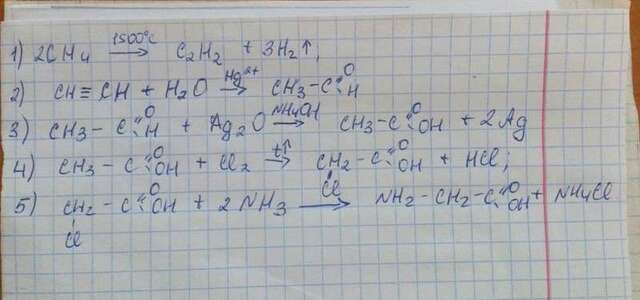 1) 2CH4 1500°C → C2H2 + 3H2↑;
2) CH≡CH + H2O Hg2+ → CH3-C=O H
3) CH3-C=O H + Ag2O NH4OH → CH3-C=O OH + 2Ag
4) CH3-C=O OH + Cl2 t↑ → CH2-C=O OH + HCl;
Cl
5) CH2-C=O OH + 2NH3 → NH2-CH2-C=O OH + NH4Cl
Cl